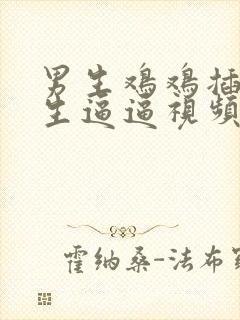 男生鸡鸡插
生逼逼視頻
霍纳桑-法布